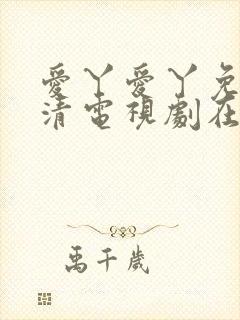 愛丫愛丫免
清電視劇在
禹千歲